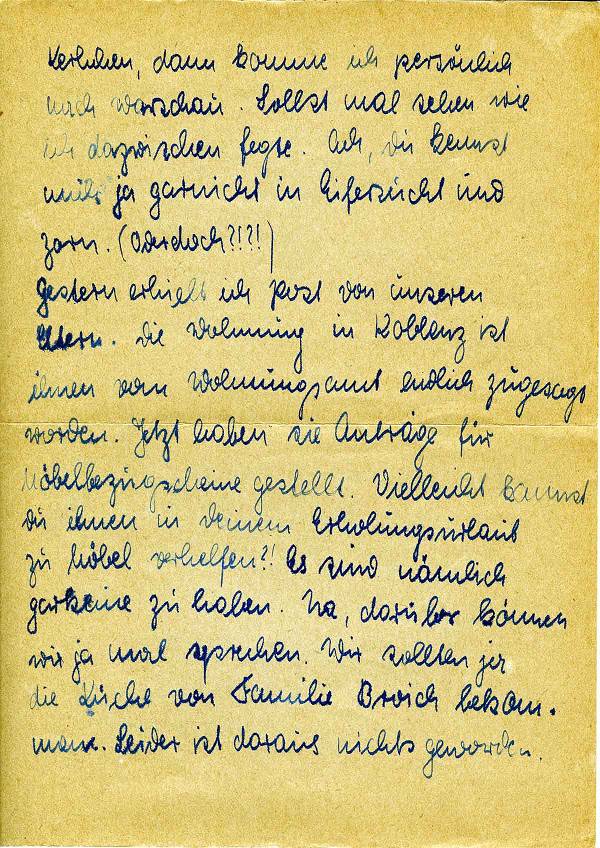 verlieben, dann komme ich persönlich
nach Warschau. Sollst mal sehen wie
ich dazwischen fege. Ach, du kennst
mich ja garnicht in Eifersucht und
Zorn. (Oder doch?!?!)
Gestern erhielt ich Post von unseren
Eltern. Die Wohnung in Koblenz ist
ihnen vom Wohnungsamt endlich zugesagt
worden. Jetzt haben sie Anträge für
Möbelbezugscheine gestellt. Vielleicht kannst
du ihnen in deinem Erholungsurlaub
zu Möbel verhelfen?! Es sind nämlich
garkeine zu haben. Na, darüber können
wir ja mal sprechen. Wir sollten ja
die Küche von Familie Broich bekom-
men. Leider ist daraus nichts geworden.